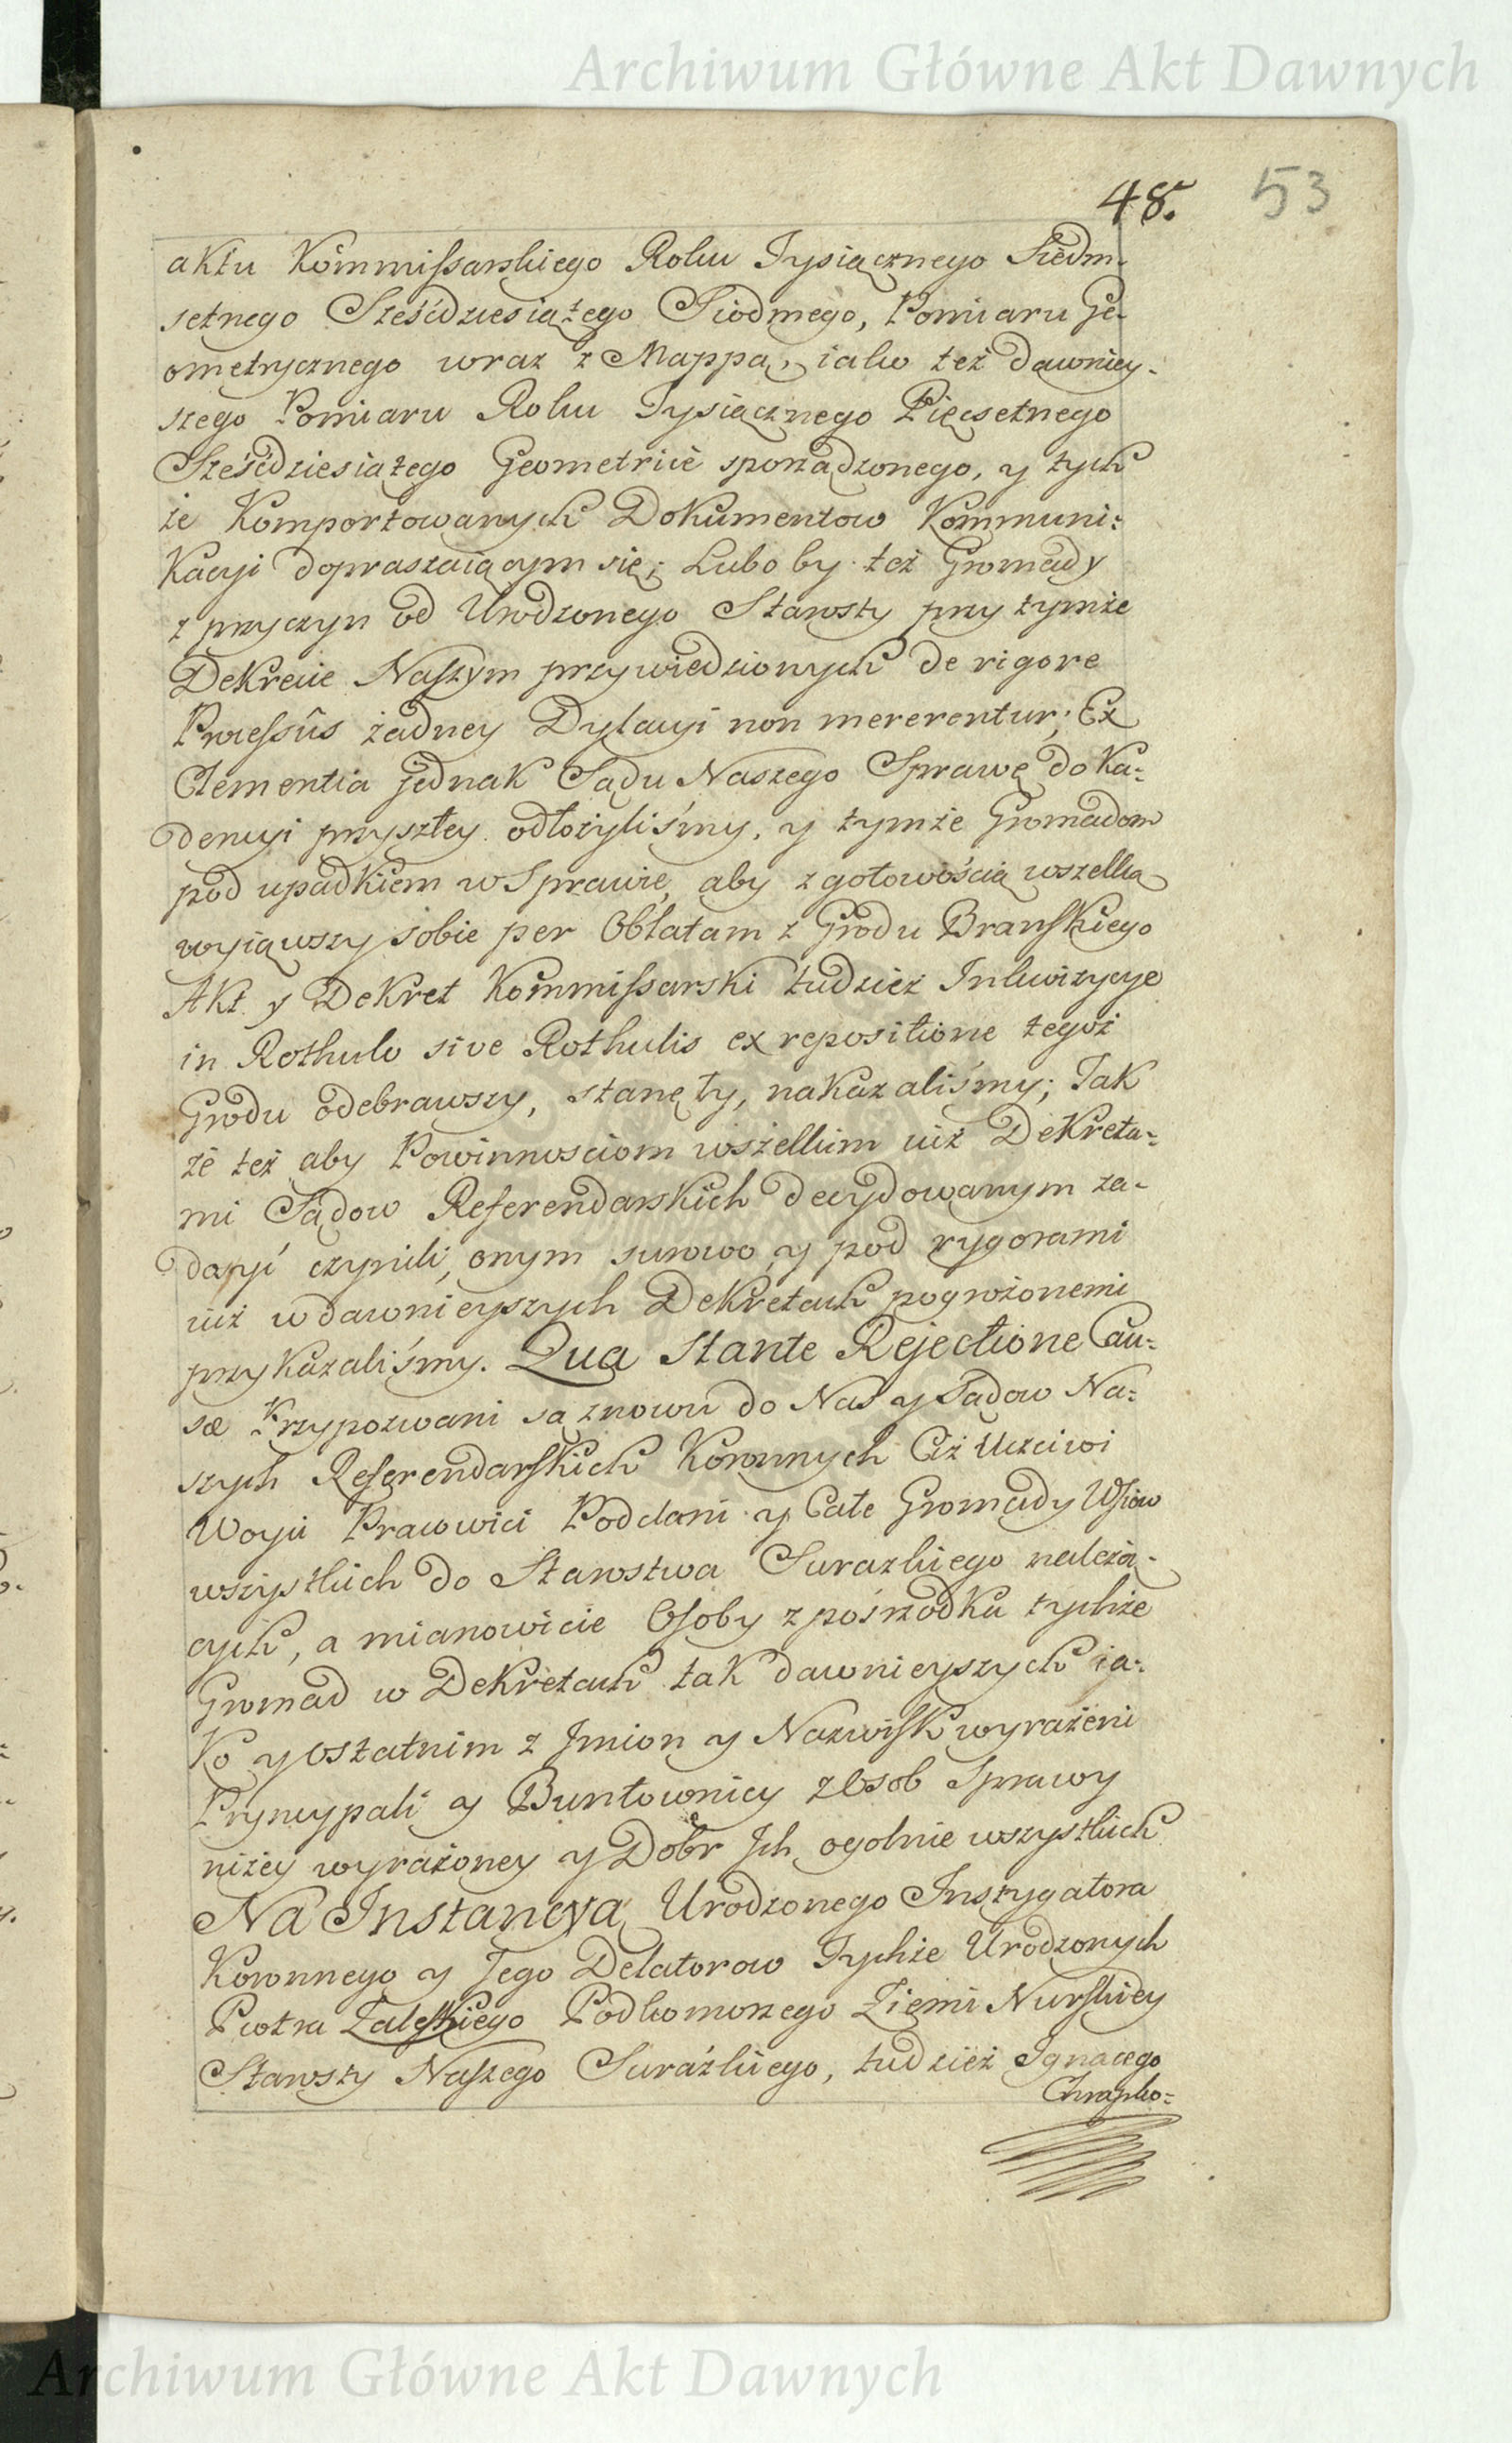 Archiwum Główne Akt Dawnych
48. 53
aktu Kommissarskiego Roku Tysiącznego Siedm-
setnego Sześćdziesiątego Siodmego, Pomiaru Ge-
ometrycznego wraz z Mappą, iako też dawniey-
szego Pomiaru Roku Tysiącznego Pięcsetnego
Sześćdziesiątego Geometricè sporządzonego, y tych
że Komportowanych Dokumentow Kommuni:
Kacyi dopraszaiącym się; Lubo by też Gromady
z przyczyn od Urodzonego Starosty przy tymże
Dekrecie Naszym przywiedzionych de rigore
Processûs żadney Dylacyi non mererentur; Ex
Clementia jednak Sądu Naszego Sprawę do Ka:
dencyi przyszłey odłożyliśmy, y tymże Gromadom
pod upadkiem w Sprawie, aby z gotowością wszelką
wyiąwszy sobie per Oblatam z Grodu Branskiego
Akt y Dekret Kommissarski tudzież Inkwizycye
in Rothulo sive Rothulis ex repositione tegoż
Grodu odebrawszy, stanęły, nakazaliśmy; Tak
że też aby Powinnosciom wszelkim iuż Dekreta:
mi Sądow Referendarskich decydowanym za-
dosyć czynili, onym surowo y pod rygorami
iuż w dawnieyszych Dekretach pogrożonemi
przykazaliśmy. Qua stante Rejectione Cau:
sæ Przypozwani są znowu do Nas y Sądow Na:
szych Referendarskich Koronnych Ciż Uczciwi
Woyci Prawowici Poddani y Całe Gromady Wsiow
wszystkich do Starostwa Surazkiego należą-
cych, a mianowicie Osoby z pośrzodku tychże
Gromad w Dekretach tak dawnieyszych ja:
Ko y Ostatnim z Imion y Nazwisk wyrażeni
Pryncypali y Buntownicy z Osob Sprawy
niżey wyrażoney y Dobr Ich ogolnie wszystkich
Na Instancyą Urodzonego Instygatora
Koronnego y Jego Delatorow Tychże Urodzonych
Piotra Zaleskiego Podkomorzego Ziemi Nurskiey
Starosty Naszego Suraźkiego, tudzież Ignacego
Chrapko=
Archiwum Główne Akt Dawnych